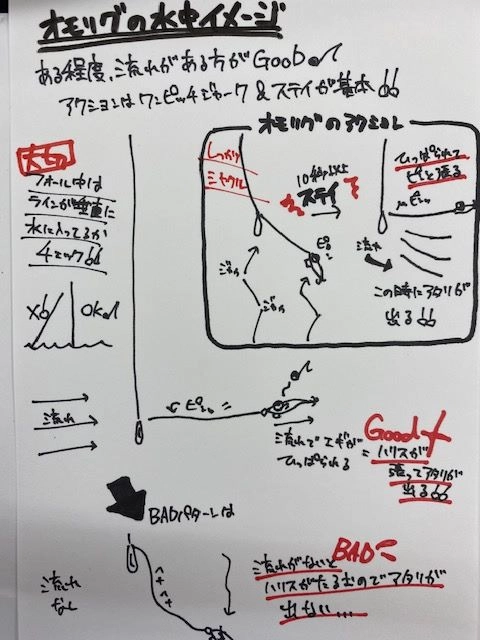 オモリグの水中イメージ
ある程度、流れがある方がGood
アクションはワンピッチジャーク&ステイが基本
大切
フォール中は
ラインが垂直に
水に入ってるか
チェック
×
OK
オモリグのアクション
しっかり
シャクル
10秒以上
ステイ
ひっぱられて
ピンと張る
ピーン
ジャク
ジャク
流れ
この時にアタリが
出る
流れ
ピーン
流れでエギが
ひっぱられる
Good
=ハリスが
張ってアタリが
出る
BADパターンは
流れ
なし
BAD
流れがないと
ハリスがたるむのでアタリが
出ない…